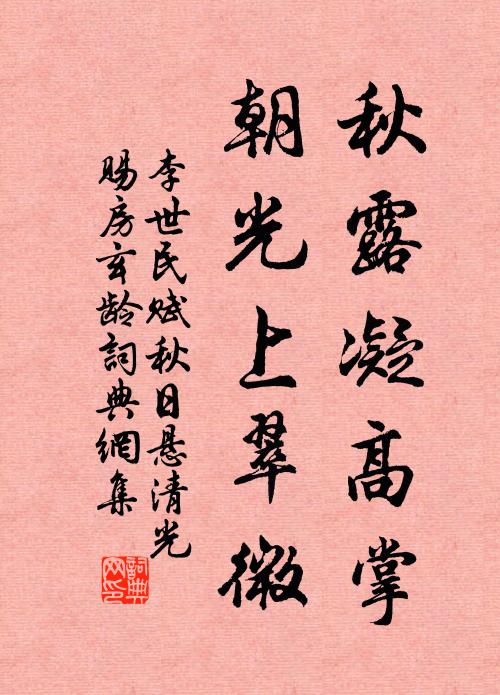 秋露凝高掌
朝光上翠微
李世民赋秋日悬清光
赐房玄龄詞典網集
詞典网印